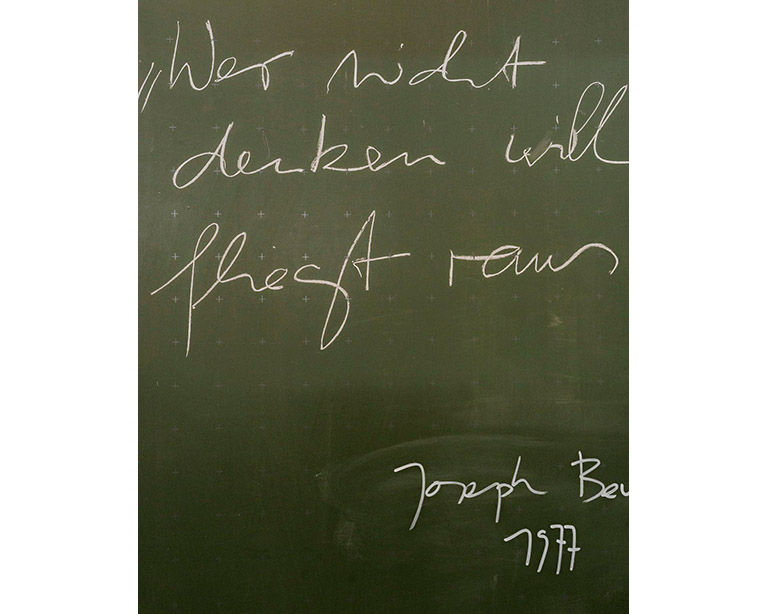 „Wer nicht
denken will
fliegt raus
Joseph Beu
1977